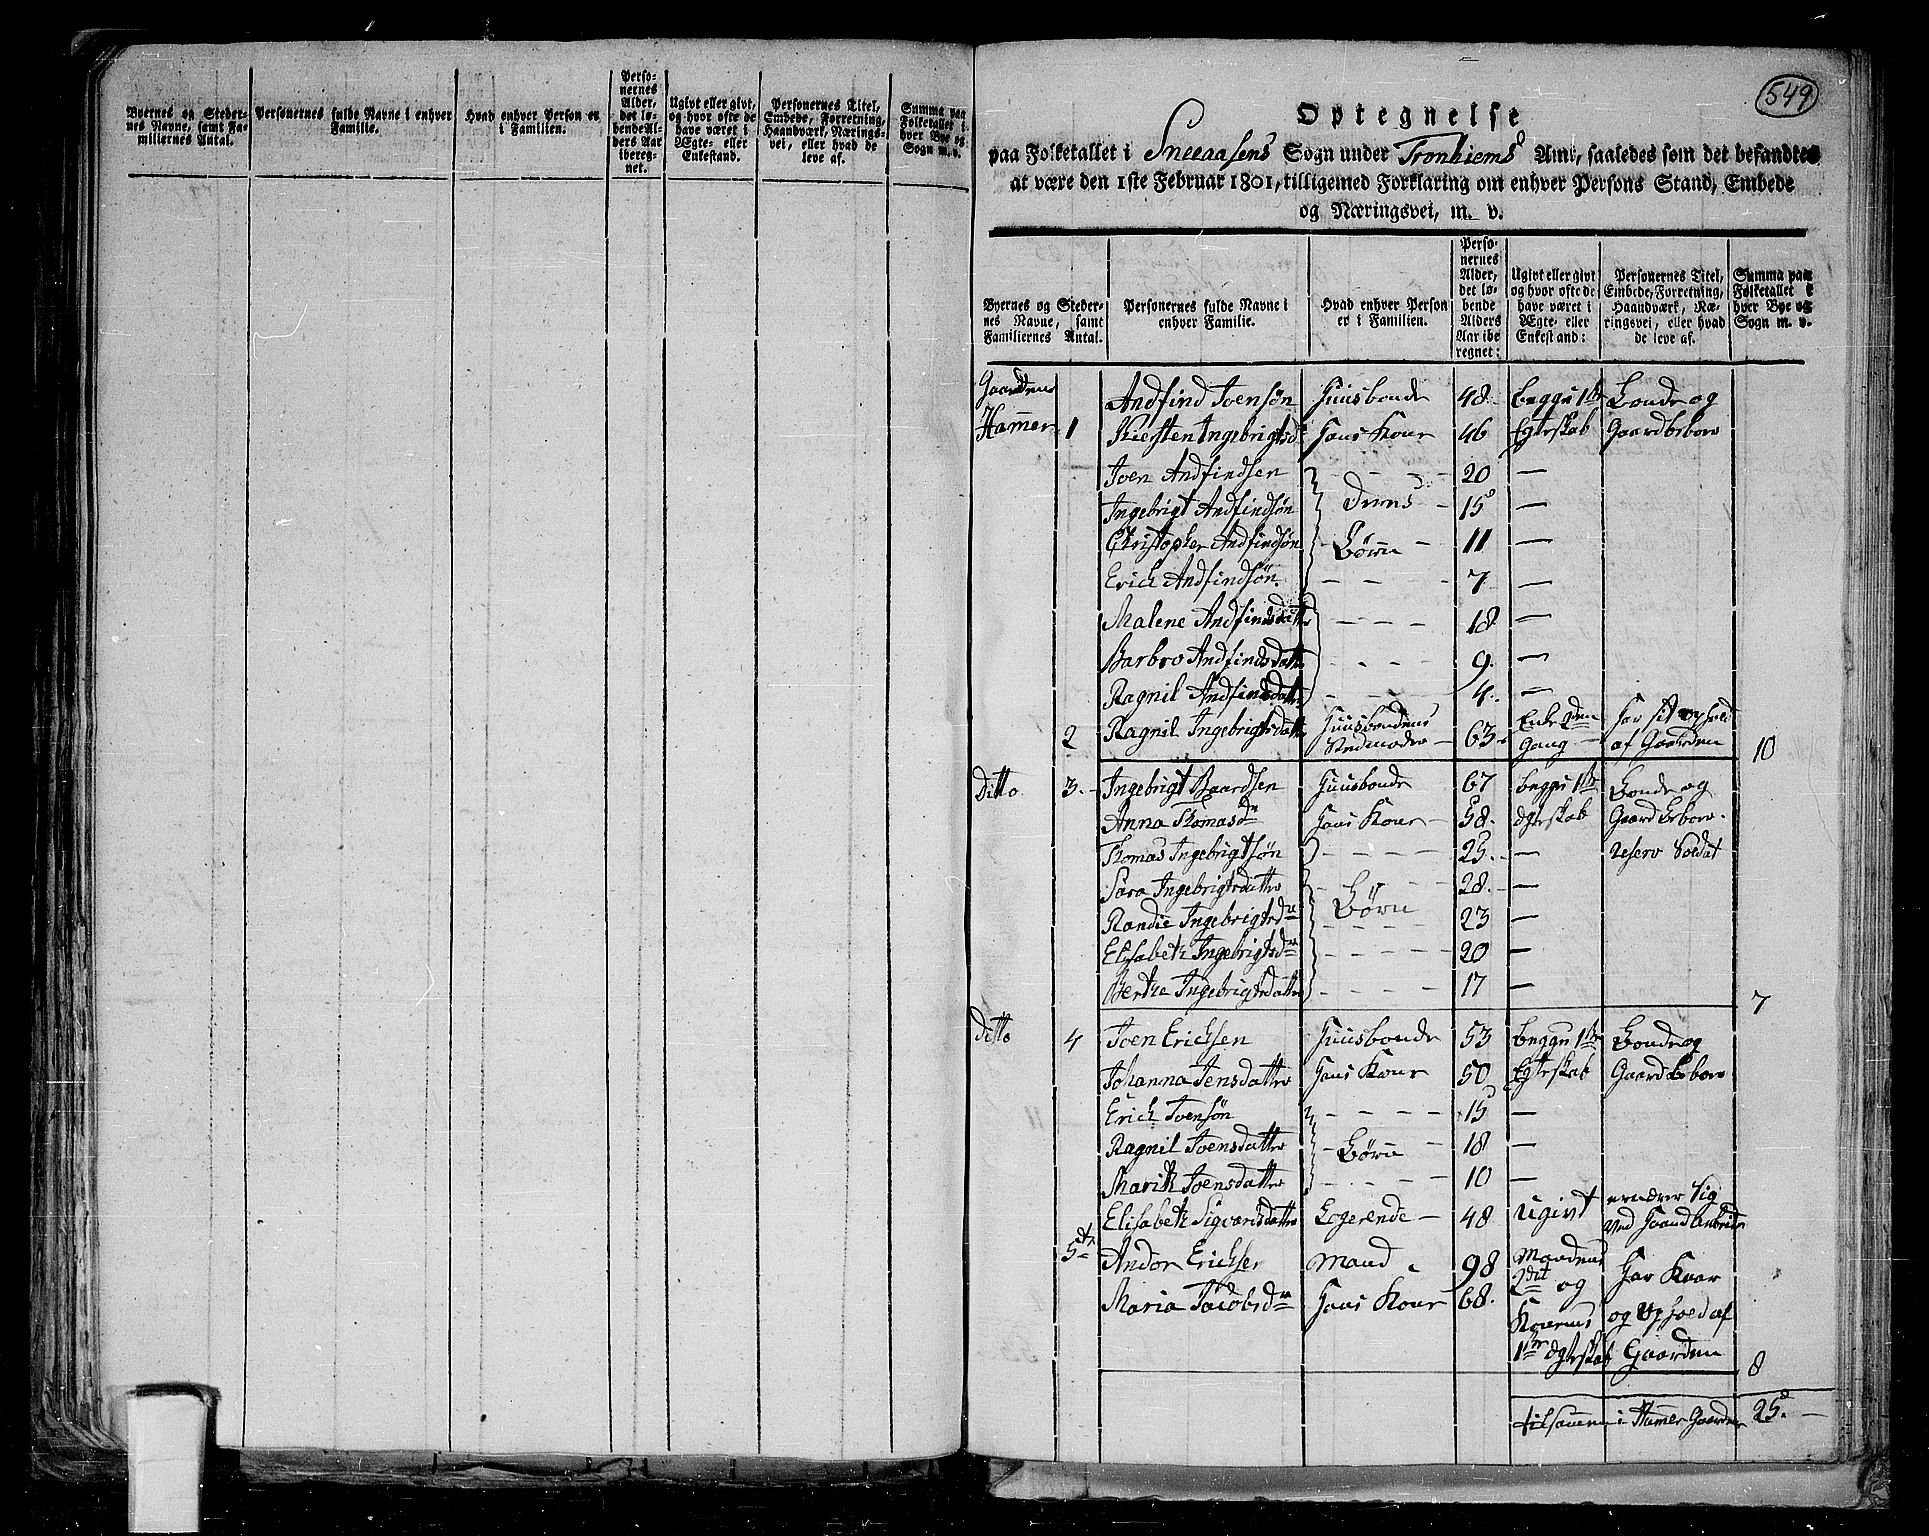 Byernes og Steder-
nes Navne, samt Fa-
miliernes Antal.
Personernes fulde Navne i enhver
Familie.
Hvad enhver Person er
i Familien.
Perso-
nernes
Alder,
det lø-
bende Al-
ders Aar
ibereg-
net.
Ugivt eller givt,
og hvor ofte de
have været i
Ægte- eller
Enkestand.
Personernes Titel,
Embede, Forretning,
Haandværk, Nærings-
vei, eller hvad de
leve af.
Summa paa
Folketallet i
hver Bye og
Sogn m. v.
549
Optegnelse
paa Folketallet i Sneeaasens Sogn under Tronhiems Amt, saaledes som det befandtes
at være den 1ste Februar 1801, tilligemed Forklaring om enhver Persons Stand, Embede
og Næringsvei, m. v.
Byernes og Steder-
nes Navne, samt
Familiernes Antal.
Personernes fulde Navne i
enhver Familie.
Hvad enhver Person
er i Familien.
Perso-
nernes
Alder,
det lø-
bende
Alders
Aar ibe
regnet:
Ugivt eller givt
og hvor ofte de
have været i
Ægte- eller
Enkestand:
Personernes Titel,
Embede, Forretning,
Haandværk, Næ-
ringsvei, eller hvad
de leve af.
Summa paa
Folketallet i
hver Bye og
Sogn m. v.
Gaarden Andfind Joensøn Huusbonde 48. begge 1ste Bonde og
Hammer 1 Kiersten Ingebrigtsd. Hans Kone 46 Egteskab Gaardbeboer
Joen Andfindsen 20 —
Ingebrigt Andfindsøn Deres 15 —
Christopher Andfindsøn Børn 11 —
Erich Andfindsøn 7 —
Malene Andfindsdatter 18 —
Barbro Andfindsdatter 9. —
Ragnil Andfindsdatter 4. —
2 Ragnil Ingebrigtsdatter Huusbondens Stedmoder 63. Enke 2den Gang har sit ophold af Gaarden 10
Ditto 3. Ingebrigt Baardsen Huusbonde 67 begge 1ste Bonde og
Anna Thomasdr Hans Kone 58. Egteskab Gaard beboer.
Thomas Ingebrigtsøn 25. — reserv Soldat
Sara Ingebrigtsdatter 28. —
Randie Ingebrigtsdr Børn 23 —
Elisabeth Ingebrigtsdr 20 —
Berthe Ingebrigtsdatter 17 — 7
Ditto 4 Joen Erichsen Huusbonde 53 begge 1ste Bonde og
Johanna Jensdatter Hans Kone 50 Egteskab Gaardbeboer
Erich Joensøn 15 —
Ragnil Joensdatter Børn 18 —
Marith Joensdatter 10 —
Elisabeth Sigvardsdatter Logerende 48 Ugivt ernærer sig
ved Haandarbeide
5te Andor Erichsen Mand 98 Mandens
2det og har Kaar
Maria Jacobsdr Hans Kone 68. Konens og Ophold af
1ste Egteskab Gaarden 8
tilsammen i Hammer Gaarden 25.